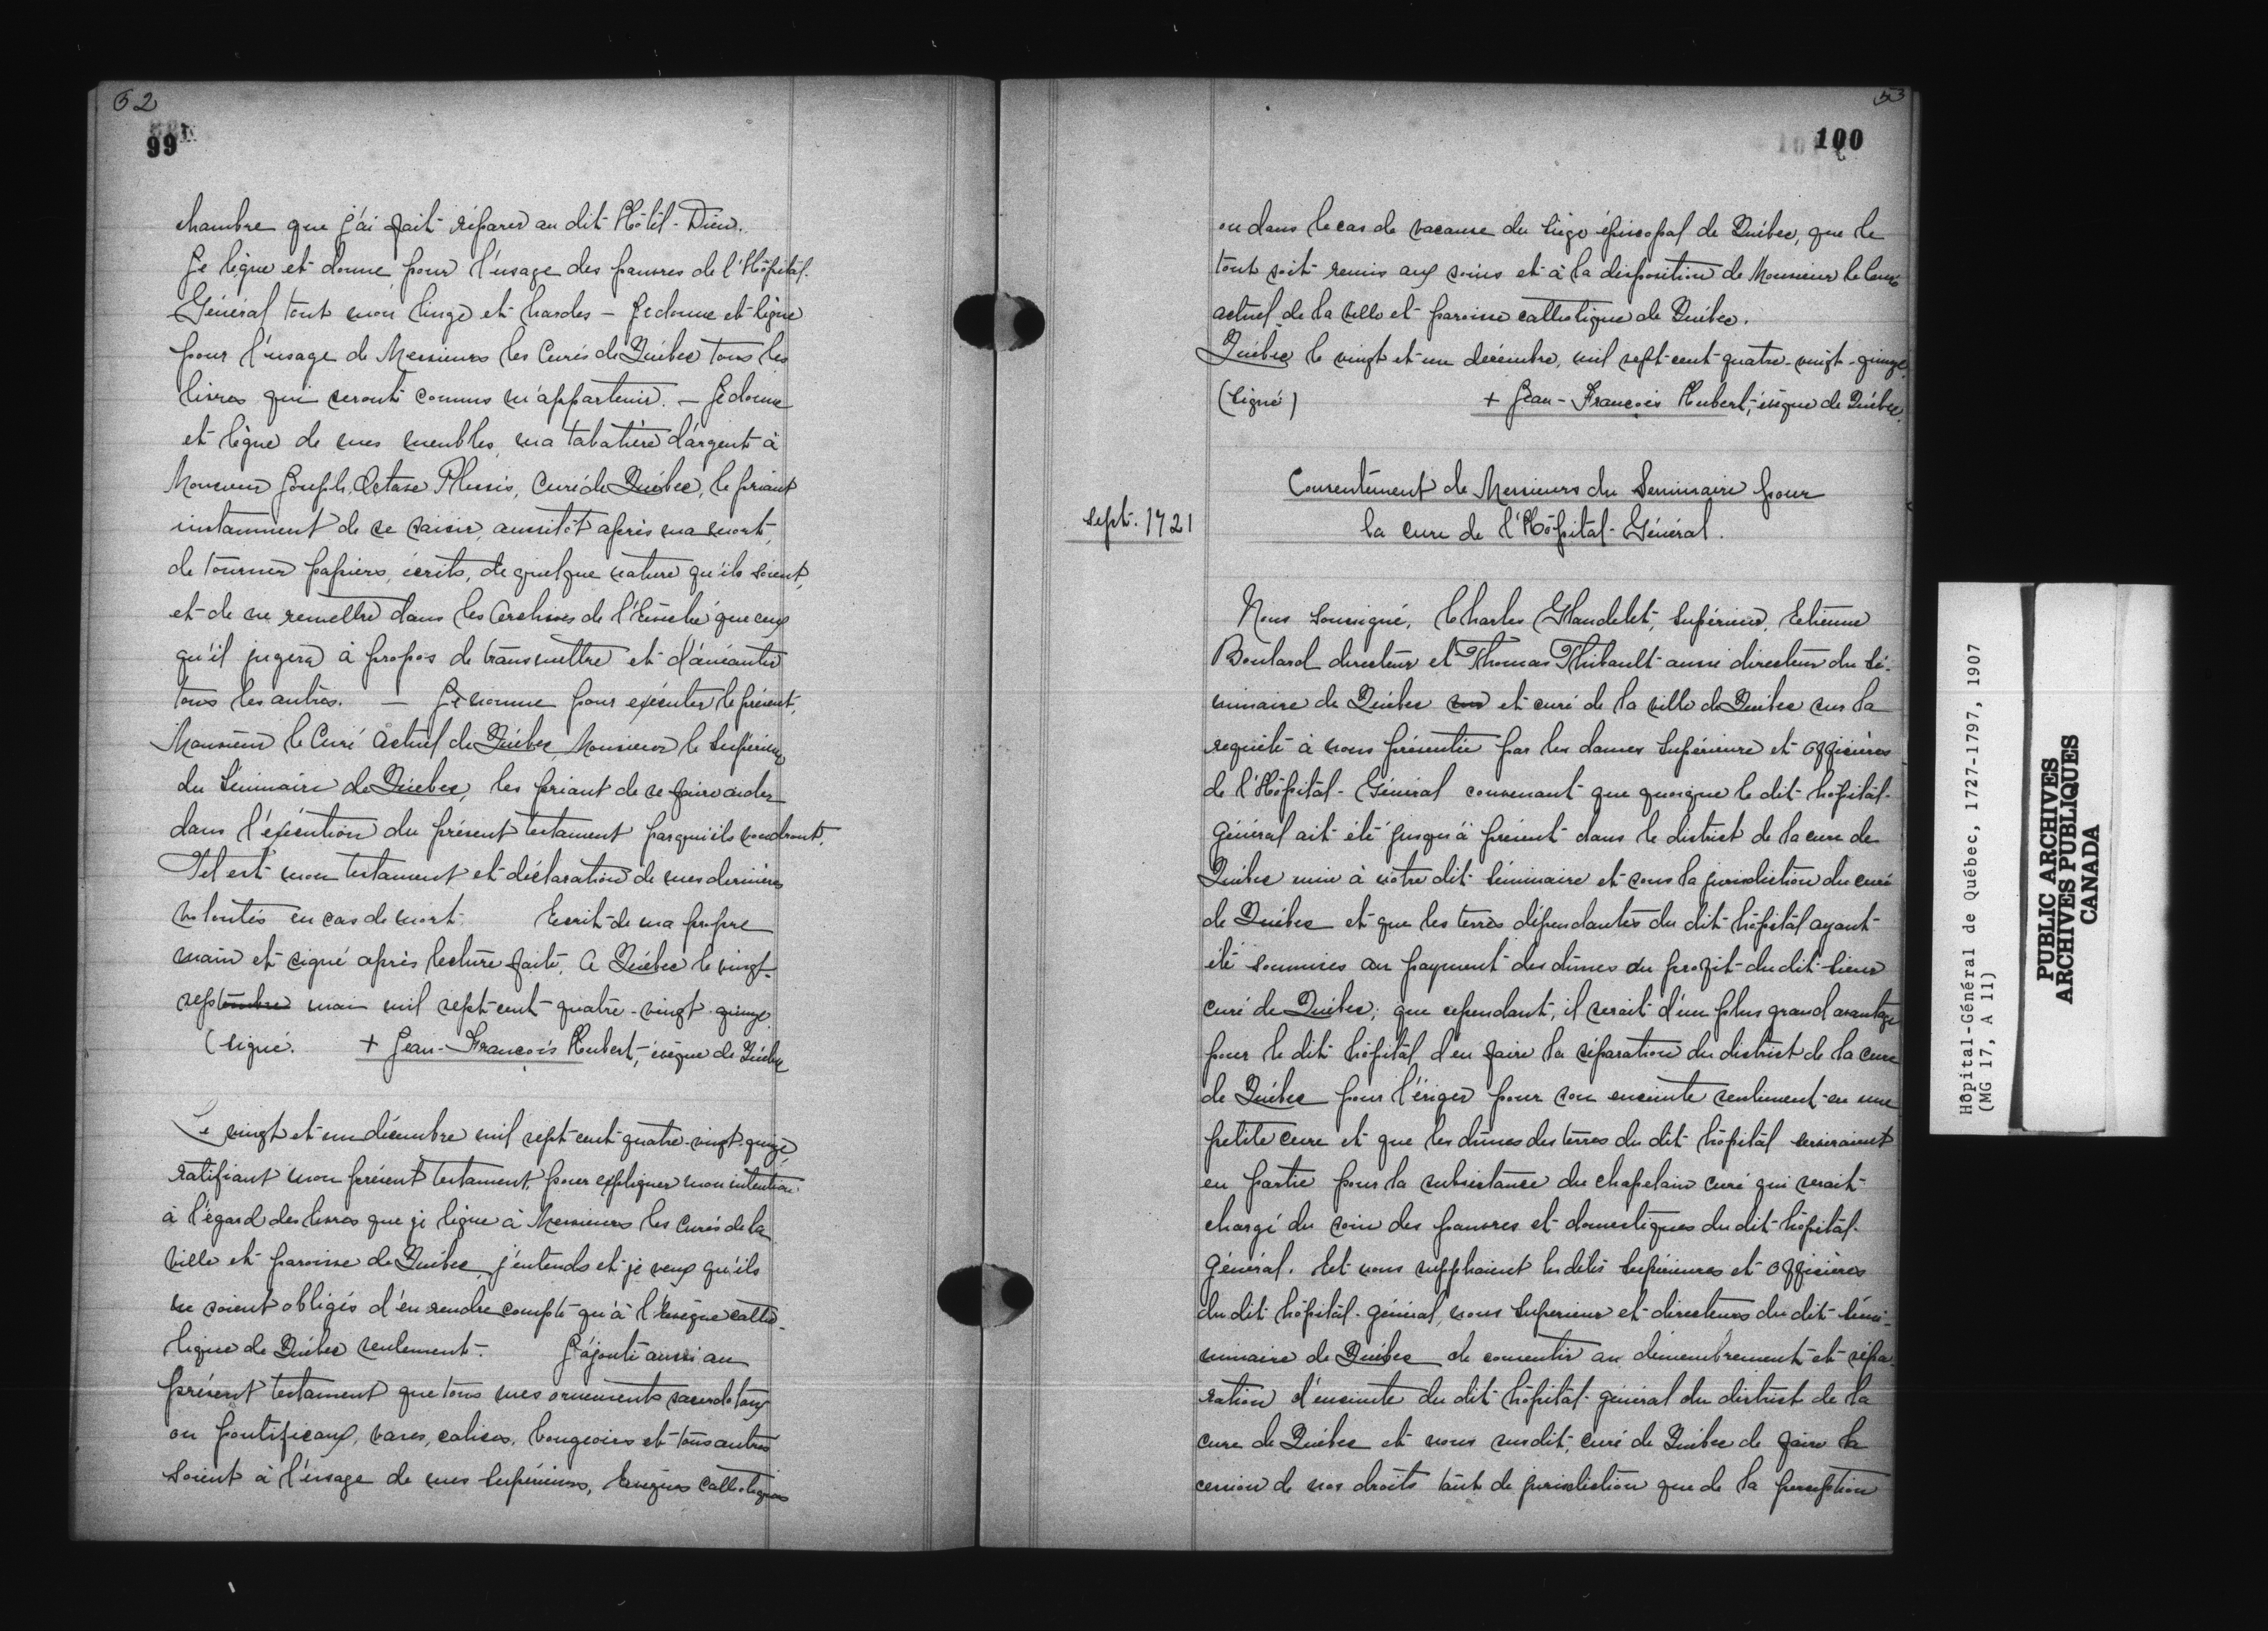 52
99
chambre que j'ai fait réparer au dit Hôtel-Dieu.
Je lègue et donne pour l'usage des pauvres de l'Hôpital-
Général tout mon linge et hardes - Je donne et lègue
pour l'usage de Messieurs les Curés de Québec tous les
livres qui seront connus m'appartenir. - Je donne
et lègue de mes meubles, ma tabatière d'argent à
Monsieur Joseph Octave Plessis, Curé de Québec, le priant
instamment de se saisir, aussitôt après ma mort,
de tous mes papiers, écrits, de quelque nature qu'ils soient,
et de ne remettre dans les Archives de l'Evêché que ceux
qu'il jugera à propos de transmettre et d'anéantir
tous les autres. - Je nomme pour exécuter le présent,
Monsieur le Curé Actuel de Québec, Monsieur le Supérieur
du Séminaire de Québec, les priant de se faire aider
dans l'exécution du présent testament par qui ils voudront.
Tel est mon testament et déclaration de mes dernières
volontés en cas de mort. Ecrit de ma propre
main et signé après lecture faite. A Québec le vingt-
septembre mai mil sept cent quatre-vingt-quinze.
(signé. + Jean-François Hubert, évêque de Québec
Le vingt et un décembre mil sept cent quatre-vingt-quinze,
ratifiant mon présent testament, pour expliquer mon intention
à l'égard des livres que je lègue à Messieurs les Curés de la
ville et paroisse de Québec, j'entends et je veux qu'ils
ne soient obligés d'en rendre compte qu'à l'Evêque catho-
lique de Québec seulement. J'ajoute aussi au
présent testament que tous mes ornements sacerdotaux
ou pontificaux, vases, calices, bougeoirs et tous autres
soient à l'usage de mes Supérieurs, Evêques Catholiques
53
100
ou dans le cas de vacance du siège épiscopal de Québec, que le
tout soit remis aux soins et à la disposition de Monsieur le Curé
actuel de la ville et paroisse catholique de Québec.
Québec le vingt et un décembre, mil sept cent quatre-vingt-quinze.
(signé) + Jean-François Hubert, évêque de Québec.
Consentement de Messieurs du Seminaire pour
sept. 1721
la cure de l'Hôpital-Général.
Nous soussigné, Charles Glandelet, Supérieur, Etienne
Boulard directeur et Thomas Thibault aussi directeur du Sé-
minaire de Québec et curé de la ville de Québec sur la
requête à nous présentée par les dames Supérieure et Officières
de l'Hôpital-Général convenant que quoique le dit hôpital-
général ait été jusqu'à présent dans le district de la cure de
Québec unie à nôtre dit Séminaire et sous la jurisdiction du curé
de Québec et que les terres dépendantes du dit hôpital ayant
été soumises au payment des dîmes au profit du dit Sieur
curé de Québec; que cependant, il serait d'un plus grand avantage
pour le dit hôpital d'en faire la séparation du district de la cure
de Québec pour l'ériger pour son enceinte seulement en une
petite cure et que les dîmes des terres du dit hôpital serviraient
en partie pour la subsistance du chapelain curé qui serait
chargé du soin des pauvres et domestiques du dit hôpital-
général. Et nous supplioient les dites Supérieures et Officières
du dit hôpital-général, nous Supérieur et directeurs du dit Sémi-
minaire de Québec de consentir au démembrement et sépa-
ration d'enceinte du dit hôpital-général du district de la
cure de Québec et nous susdit, curé de Québec de faire la
cession de nos droits tant de jurisdiction que de la perception
Hôpital-Général de Québec, 1727-1797, 1907
(MG 17, A 11)
PUBLIC ARCHIVES
ARCHIVES PUBLIQUES
CANADA